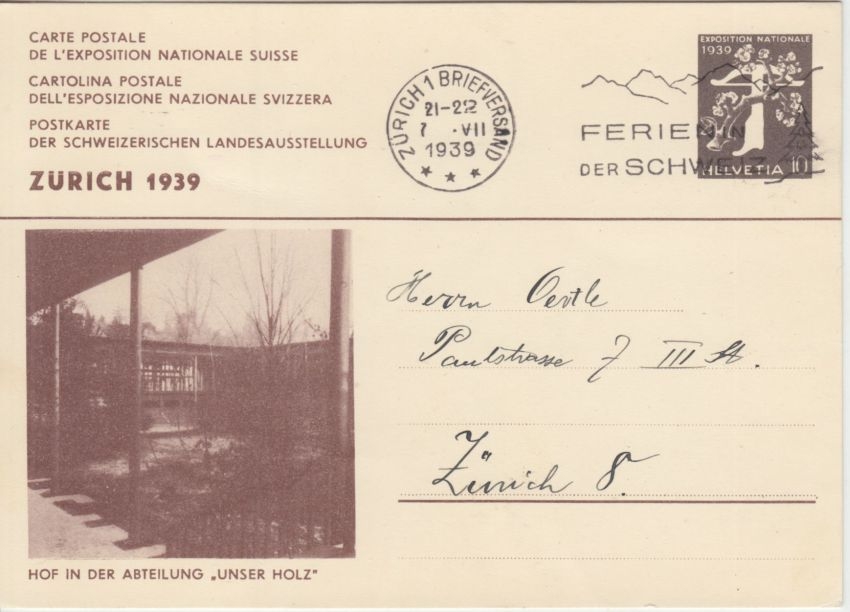 CARTE POSTALE
DE L'EXPOSITION NATIONALE SUISSE
CARTOLINA POSTALE
DELL'ESPOSIZIONE NAZIONALE SVIZZERA
POSTKARTE
DER SCHWEIZERISCHEN LANDESAUSSTELLUNG
ZÜRICH 1939
ZÜRICH 1 BRIEFVERSAND
21-22
7 .VII
1939
FERIEN IN
DER SCHWEIZ
EXPOSITION NATIONALE
1939
HELVETIA 10
Herrn Oertle
Paulstrasse 7 III St.
Zürich 8.
HOF IN DER ABTEILUNG „UNSER HOLZ"